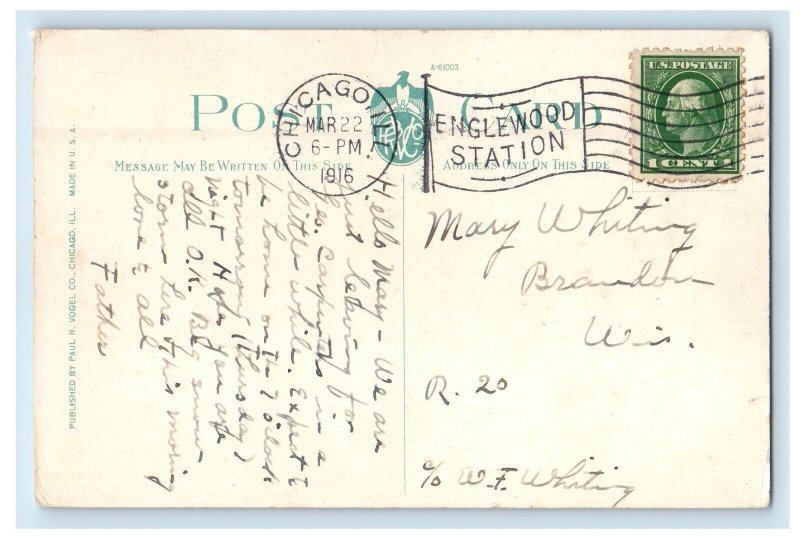 A-61003
POST CARD
CHICAGO, ILL.
MAR 22
6-PM
1916
ENGLEWOOD
STATION
U.S. POSTAGE
1 CENT 1
MESSAGE MAY BE WRITTEN ON THIS SIDE
ADDRESS ONLY ON THIS SIDE
Hello Mary - We are
just leaving for
Geo. Carpenters in a
little while. Expect to
be home on the 7 o'clock
tomorrow (Thursday)
night Hope you are
all O.K. Big snow
storm here this morning
love to all
Father
Mary Whiting
Brandon
Wis.
R. 20
c/o W.F. Whiting
PUBLISHED BY PAUL R. VOGEL CO., CHICAGO, ILL. MADE IN U.S.A.